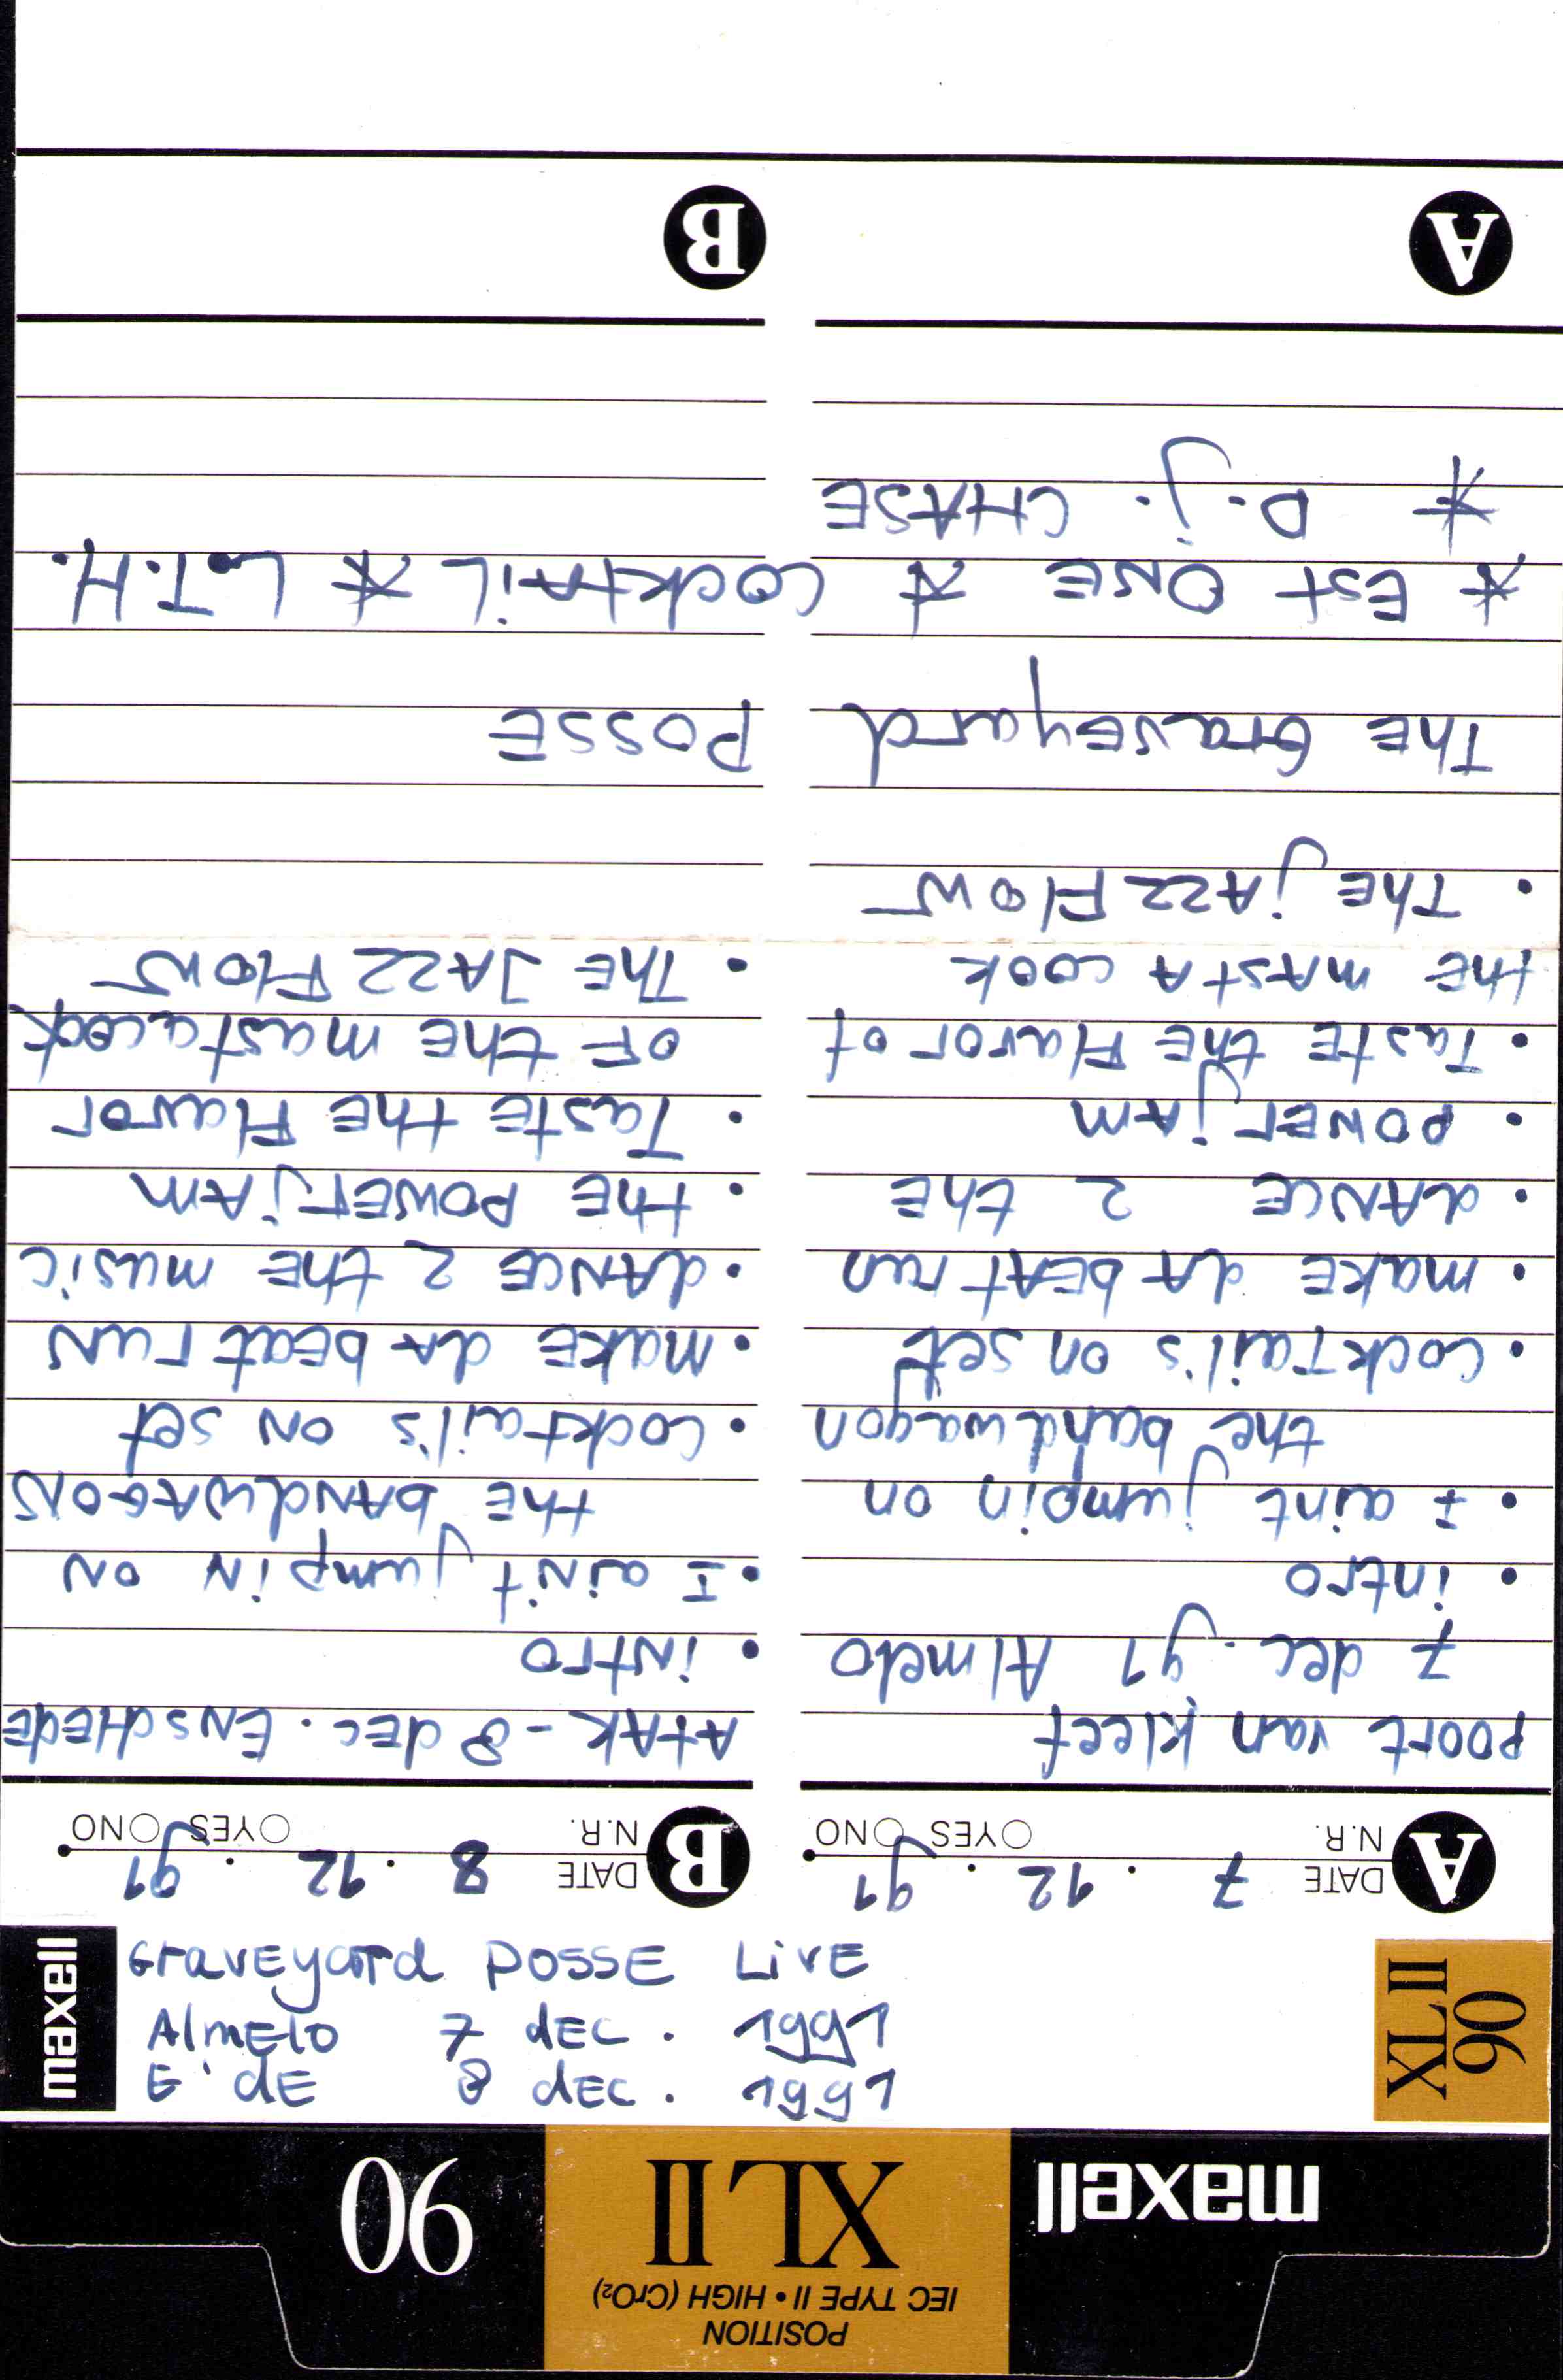 POSITION
IEC TYPE II • HIGH (CrO₂)
maxell
XL II
90
maxell
GravEyard POSSE LivE
AlmElo 7 dEc. 1991
E'dE 8 dEc. 1991
XL II
90
A
DATE 7 . 12 . 91
N.R. ○YES ○NO
poort van kleef
7 dec. 91 Almelo
• intro
• I aint jumpin on
the bandwagon
• cockTail's on set
• makE dA bEAt run
• dANCE 2 thE
• powEr jAm
• TastE thE Flavor of
thE mAstA cook
• ThE jAzz Flow
B
DATE 8 . 12 . 91
N.R. ○YES ○NO
AtAK - 8 dEc. ENSCHEdE
• iNtro
• I aiNt jumpiN oN
thE bANdwAGoN
• cocktail's oN sEt
• makE dA bEat ruN
• dANCE 2 thE music
• thE powEr jAm
• TastE thE Flavor
oF thE masta cook
• ThE JAzz Flow
ThE GravEyard POSSE
* EST ONE * COCKTAiL * L.T.H.
* D.j. CHASE
A
B